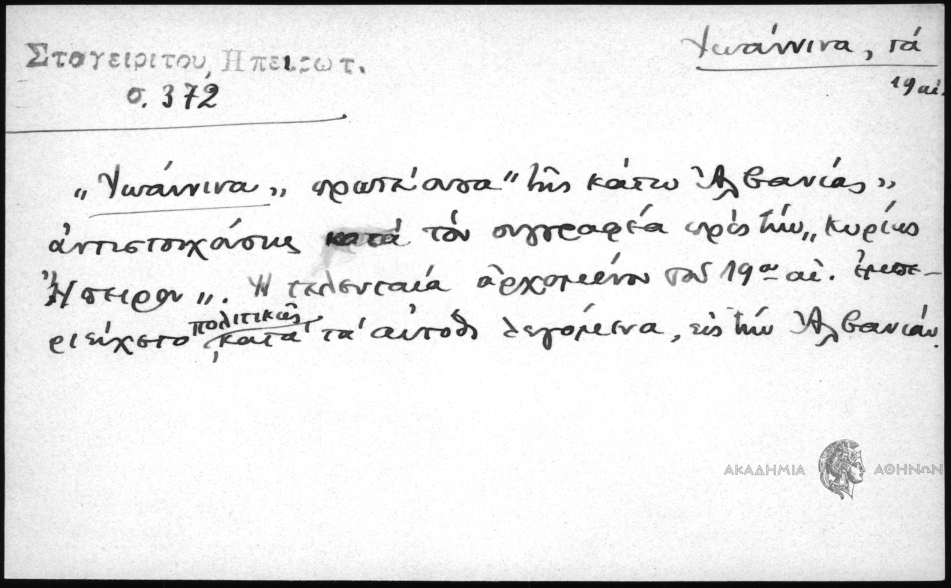 Σταγειρίτου, Ηπειρωτ.
σ. 372
Ἰωάννινα, τά
19 αἰ.
„Ἰωάννινα„ πρωτεύουσα „τῆς κάτω Ἀλβανίας„
ἀντιστοιχούσης κατά τόν συγγραφέα πρός τήν „Κυρίως
Ἤπειρον„. Ἡ τελευταία ἀρχομένου τοῦ 19ου αἰ. ἐμπε-
ριείχετο πολιτικῶς κατά τά αὐτόθι λεγόμενα, εἰς τήν Ἀλβανίαν.
ΑΚΑΔΗΜΙΑ ΑΘΗΝΩΝ